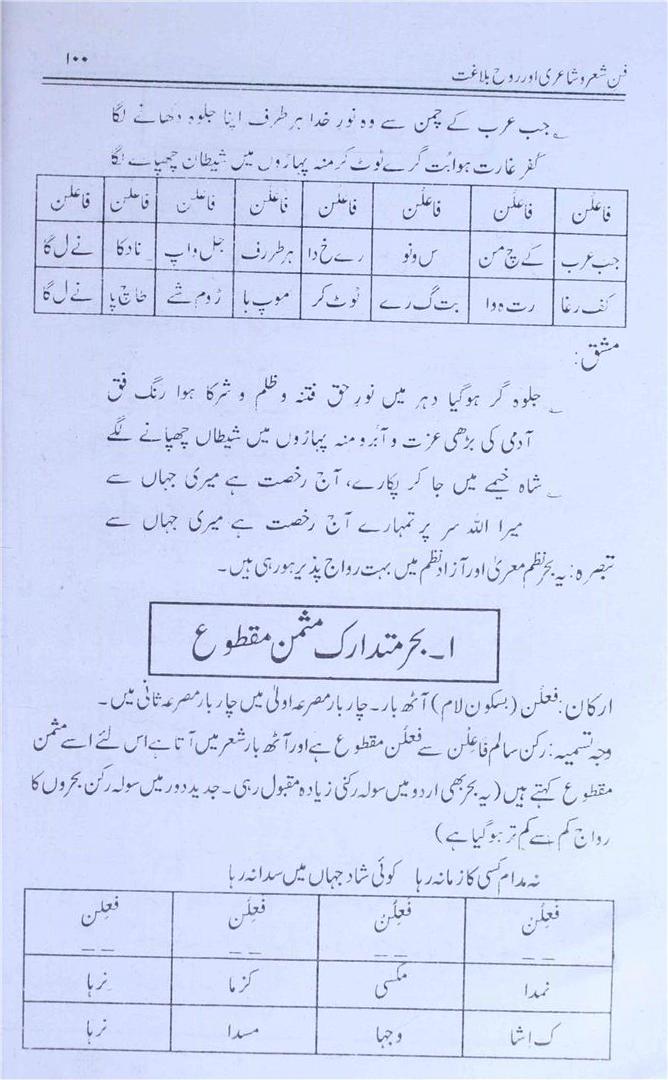 ۱۰۰
فن شعر و شاعری اور روح بلاغت
جب عرب کے چمن سے وہ نورِ خدا ہر طرف اپنا جلوہ دکھانے لگا
کفر غارت ہوا بُت گرے ٹوٹ کر منہ پہاڑوں میں شیطان چھپانے لگا
فاعلن فاعلن فاعلن فاعلن فاعلن فاعلن فاعلن فاعلن
جب عرب کے چ من س و نو رے خ دا ہر طرف جل و اپ نا دکا نے ل گا
کف ر غا رت ہ وا بت گ رے ٹوٹ کر موپ ہا ڑوم شے طاچ پا نے ل گا
مشق:
جلوہ گر ہوگیا دہر میں نورِ حق فتنہ و ظلم و شر کا ہوا رنگ فق
آدمی کی بڑھی عزت و آبرو منہ پہاڑوں میں شیطاں چھپانے لگے
شاہ خیمے میں جا کر پکارے، آج رخصت ہے میری جہاں سے
میرا اللہ سر پر تمہارے آج رخصت ہے میری جہاں سے
تبصرہ: یہ بحر نظم معریٰ اور آزاد نظم میں بہت رواج پذیر ہو رہی ہیں۔
۱۔ بحر متدارک مثمن مقطوع
ارکان: فعلن (بسکون لام) آٹھ بار۔ چار بار مصرعہ اولیٰ میں چار بار مصرعہ ثانی میں۔
وجہ تسمیہ: رکن سالم فاعِلُن سے فعلُن مقطوع ہے اور آٹھ بار شعر میں آتا ہے اس لئے اسے مثمن
مقطوع کہتے ہیں (یہ بحر بھی اردو میں سولہ رکنی زیادہ مقبول رہی۔ جدید دور میں سولہ رکن بحروں کا
رواج کم سے کم تر ہوگیا ہے)
نہ مدام کسی کا زمانہ رہا کوئی شاد جہاں میں سدا نہ رہا
فَعِلُن فَعِلُن فَعِلُن فَعِلُن
– – – – – – – –
نمدا مکسی کزما نرہا
ک اشا وجہا مسدا نرہا